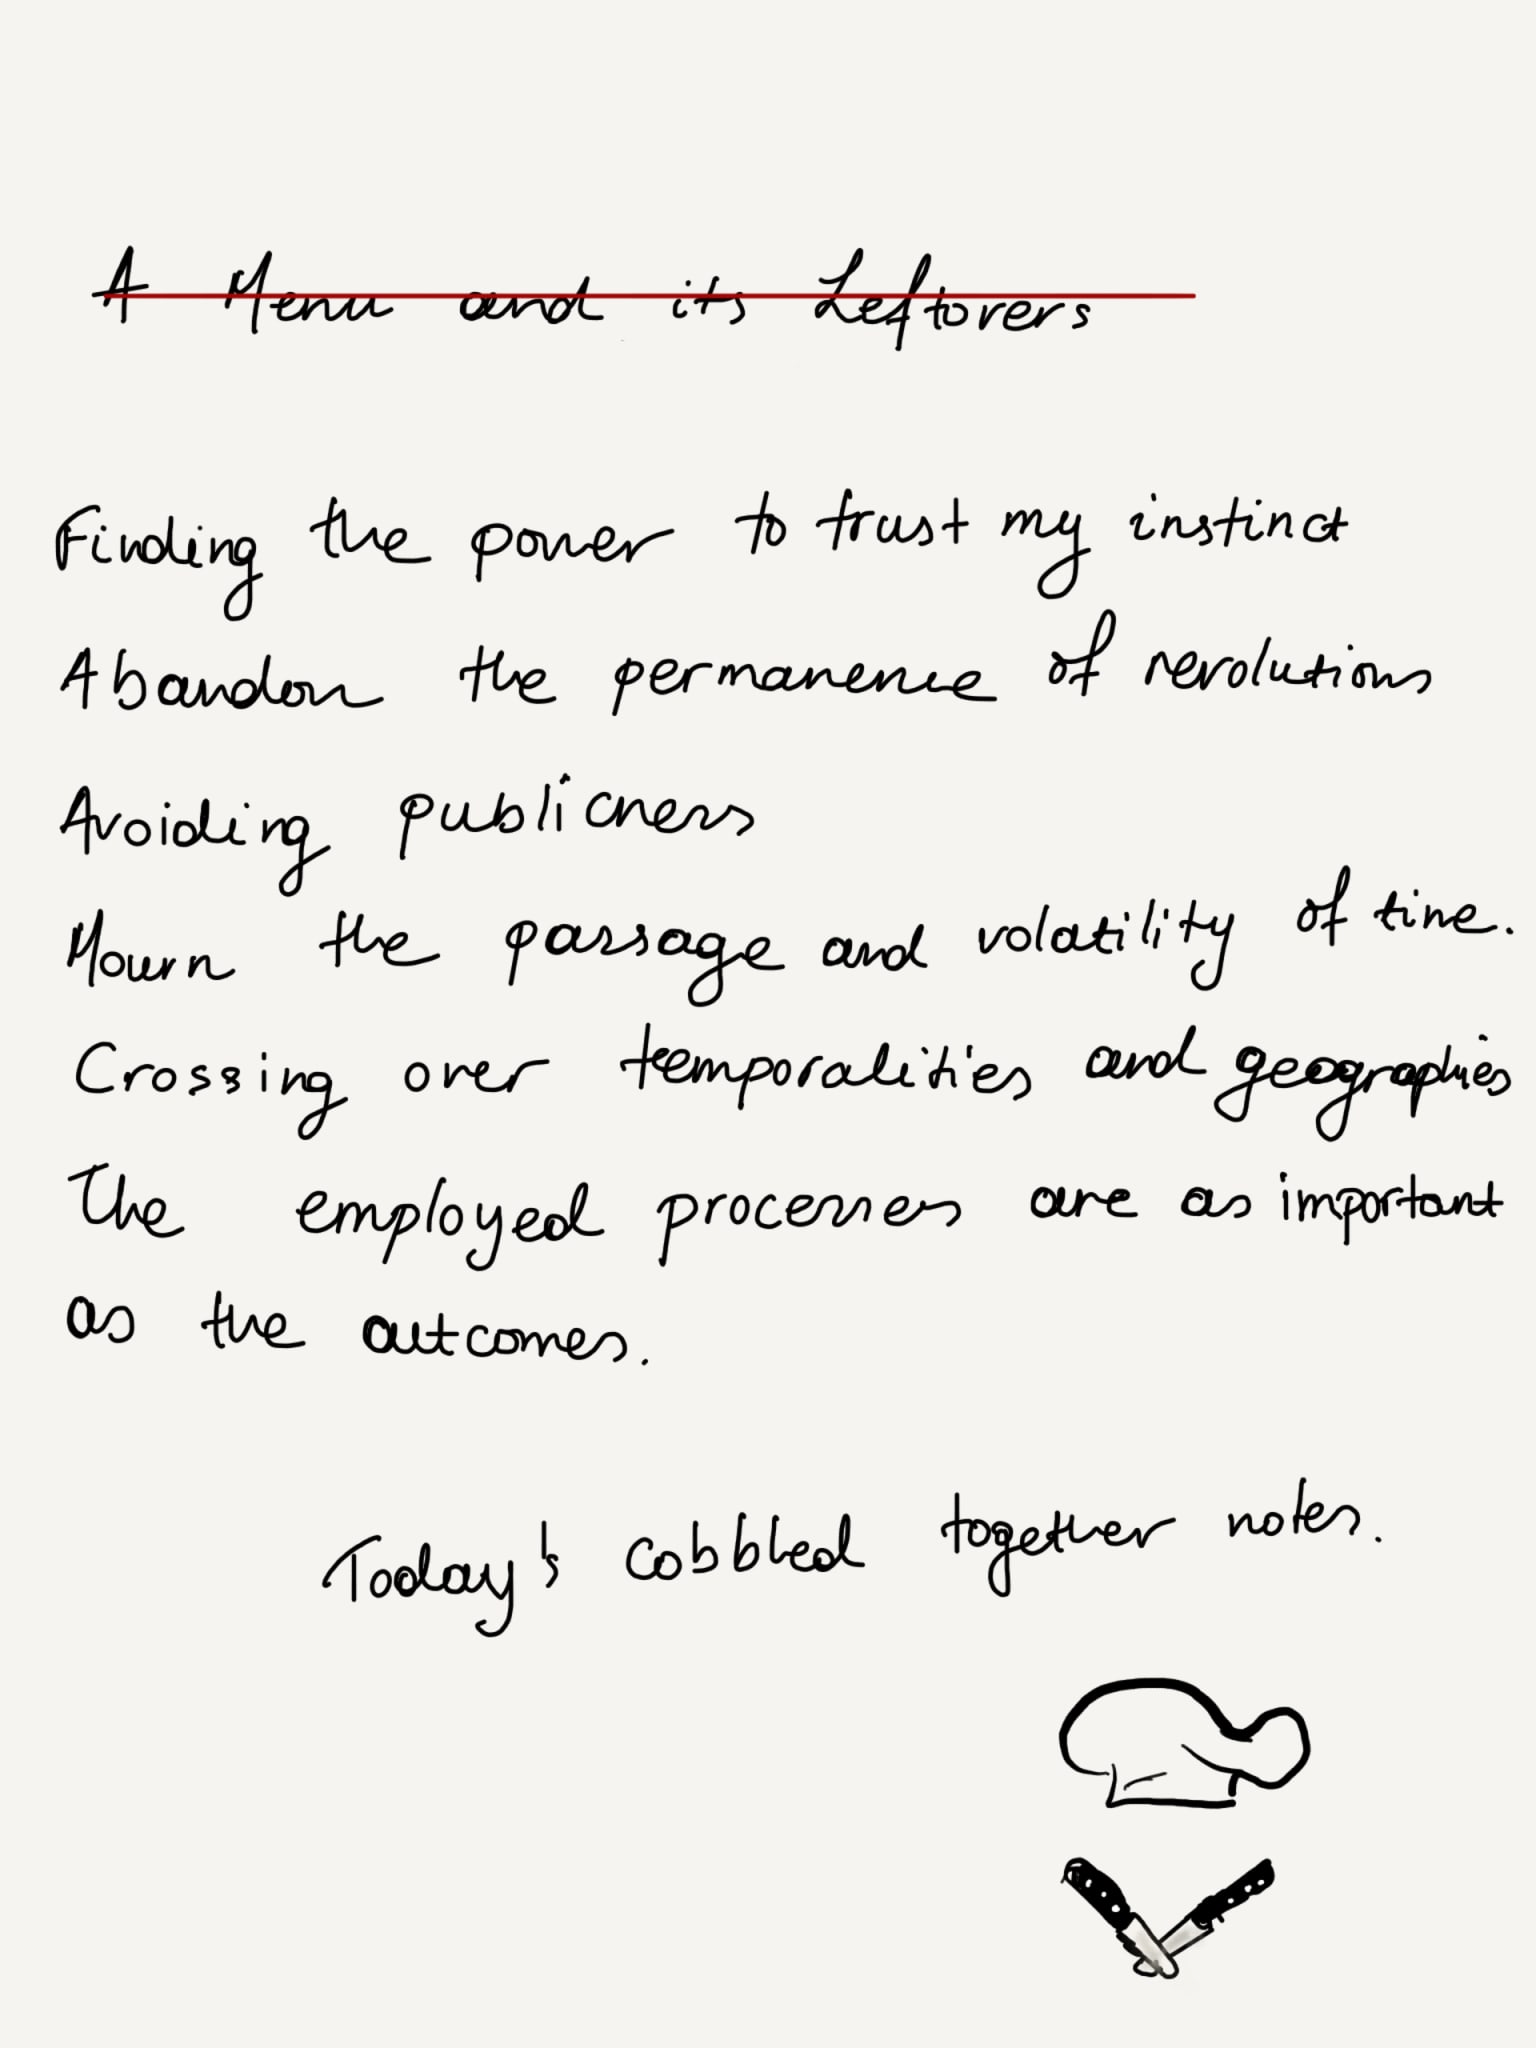 A Menu and its Leftovers
Finding the power to trust my instinct
Abandon the permanence of revolutions
Avoiding publicness
Mourn the passage and volatility of time.
Crossing over temporalities and geographies
The employed processes are as important
as the outcomes.
Today's cobbled together notes.